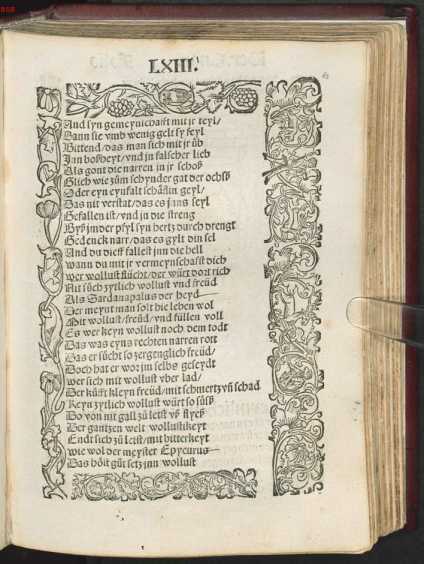 LXIII.
And syn gemeynschafft mit jr teyl/
Dann sie vmb wenig gelt sy feyl
Bittend/das man sich mit jr üb
Inn boßheyt/vnd jn falscher lieb
Als gont die narren in jr schoß
Glich wie zům schynder gat der ochß
Oder eyn eynfalt schäflin geyl/
Das nit verstat/das es jans seyl
Gefallen ist/vnd jn die streng
Byß jm der pfyl syn hertz durch drengt
Gedenck narr/das es gylt din sel
And du dieff fallest jnn die hell
wann du mit jr vermeynschafft dich
wer wollust flücht/der würt dort rich
Nit sůch zytlich wollust vnd freüd
Als Sardanapalus der heyd
Der meynt man solt hie leben wol
Mit wollust/freüd/vnd füllen voll
Es wer keyn wollust noch dem todt
Das was eyns rechten narren rott
Das er sůcht so zergenglich freüd/
Doch hat er wor jm selbs geseydt
wer sich mit wollust vber lad/
Der küfft kleyn freüd/mit schmertz vñ schad
Keyn zytlich wollust würt so süß
Do von nit gall zů letst vß flyeß
Der gantzen welt wollustikeyt
Endt sich zů letst/mit bitterkeyt
wie wol der meyster Epycurus
Das höst gůt setz jnn wollust